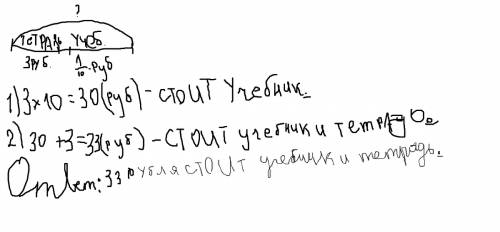 ?
ТЕТРАДЬ учеб.
3 руб. 1/10 . руб
1) 3×10=30(руб)-СТОИТ Учебник.
2) 30 +3=33(руб)-СТОИТ учебник и тетрадь.
Ответ: 33 рубля СТОИТ учебник и тетрадь.